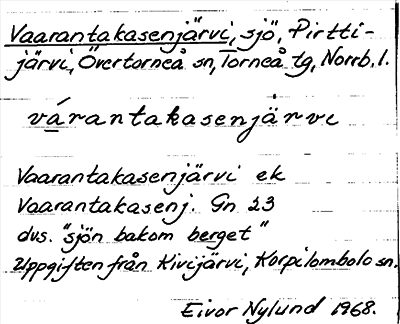 Vaarantakasenjärvi, sjö, Pirtti-
järvi, Övertorneå sn, Torneå tg, Norrb. l.
várantakasenjärvi
Vaarantakasenjärvi ek
Vaarantakasenj. Gn 23
dvs. "sjön bakom berget"
Uppgiften från Kivijärvi, Korpilombolo sn.
Eivor Nylund 1968.